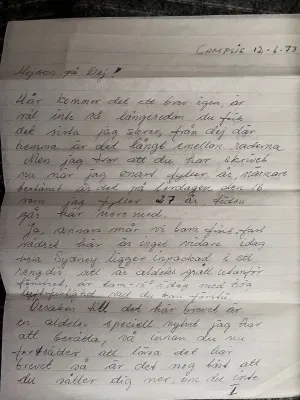 CAMPSIE 12-6-73
Hejsan på Dej!
Här kommer det ett brev igen, är
väl inte så längesedan du fick
det sista jag skrev, från dej där
hemma är det långt emellan raderna
Men jag tror att du har skrivit
nu när jag snart fyller år, närmare
bestämt är det på lördagen den 16
som jag fyller 27 år tiden
går här nere med.
Ja, annars mår vi bara fint, fast
vädret här är inget vidare idag
hela Sydney ligger inpackad i ett
regndis att är alldeles grått utanför
fönstret, är tom
vad du kan förstå.
Orsaken till det här brevet är
en alldeles speciell nyhet jag har
att berätta, så innan du nu
fortsätter att läsa det här
brevet så är det nog bäst att
du sätter dig ner, om du inte
I